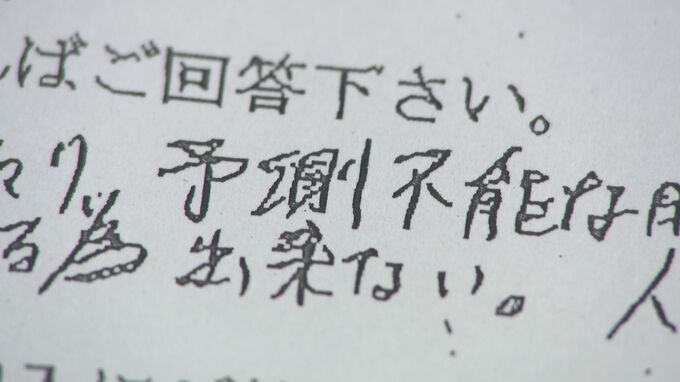 ばご回答下さい。
り、予測不能な
る為出来ない。人